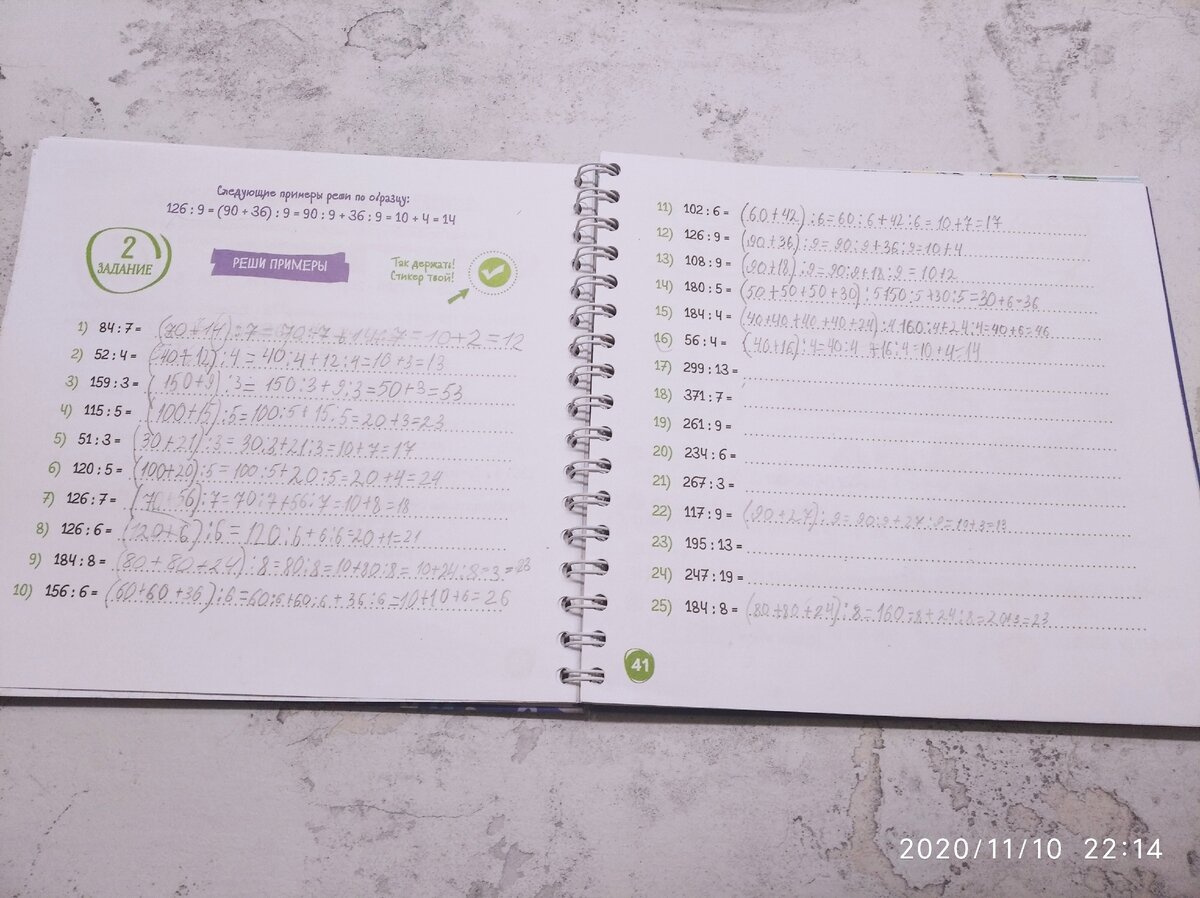 Следующие примеры реши по образцу:
126 : 9 = (90 + 36) : 9 = 90 : 9 + 36 : 9 = 10 + 4 = 14
2
ЗАДАНИЕ
РЕШИ ПРИМЕРЫ
Так держать!
Стикер твой!
1) 84 : 7 = (70+14) : 7 = 70:7+14:7 = 10+2 = 12
2) 52 : 4 = (40+12) : 4 = 40:4+12:4=10+3=13
3) 159 : 3 = (150+9) :3= 150:3+9:3=50+3=53
4) 115 : 5 = (100+15):5=100:5+15:5=20+3=23
5) 51 : 3 = (30+21) :3=30:3+21:3=10+7=17
6) 120 : 5 = (100+20):5=100:5+20:5=20+4=24
7) 126 : 7 = (70+56):7=70:7+56:7=10+8=18
8) 126 : 6 = (120+6) :6= 120:6+6:6=20+1=21
9) 184 : 8 = (80+80+24) :8=80:8=10+80:8=10+24:8=3=23
10) 156 : 6 = (60+60+36):6=60:6+60:6+36:6=10+10+6=26
11) 102 : 6 = (60+42) :6=60:6+42:6=10+7=17
12) 126 : 9 = (90+36):9=90:9+36:9=10+4
13) 108 : 9 = (90+18):9=90:9+18:9=10+2
14) 180 : 5 = (50+50+50+30) :5150:5+30:5=30+6=36
15) 184 : 4 = (40+40+40+40+24):4 160:4+24:4=40+6=46
16) 56 : 4 = (40+16):4=40:4 +16:4=10+4=14
17) 299 : 13 =
18) 371 : 7 =
19) 261 : 9 =
20) 234 : 6 =
21) 267 : 3 =
22) 117 : 9 = (90+27):9=90:9+27:9=10+3=13
23) 195 : 13 =
24) 247 : 19 =
25) 184 : 8 = (80+80+24):8=160:8+24:8=20+3=23
41
2020/11/10 22:14